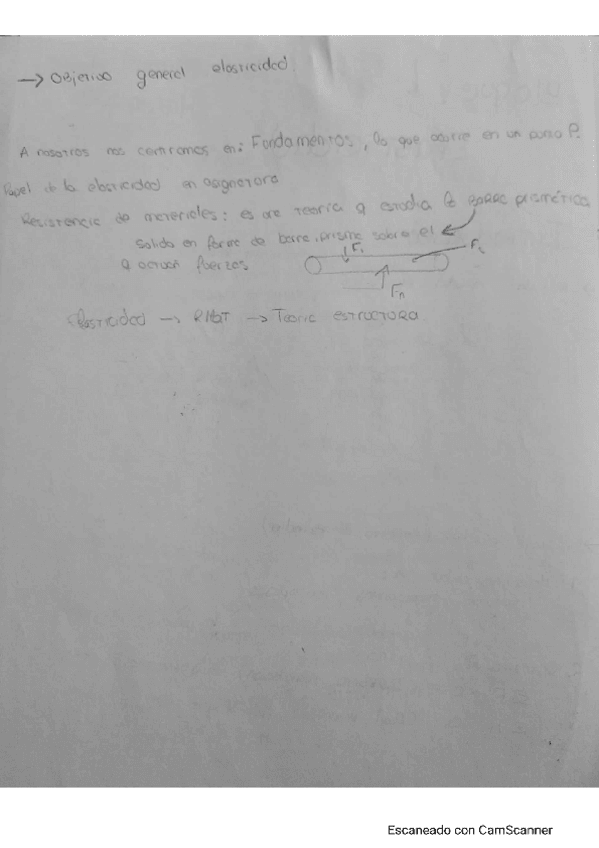 → Objetivo general elasticidad
A nosotros nos centramos en: Fundamentos, lo que ocurre en un punto P.
Papel de la elasticidad en asignatura
Resistencia de materiales: es una teoría q estudia la barra prismática
Solido en forma de barra, prisma sobre el
q actuan fuerzas
F₁
Fₙ
Elasticidad → RMAT → Teoria estructura
Escaneado con CamScanner